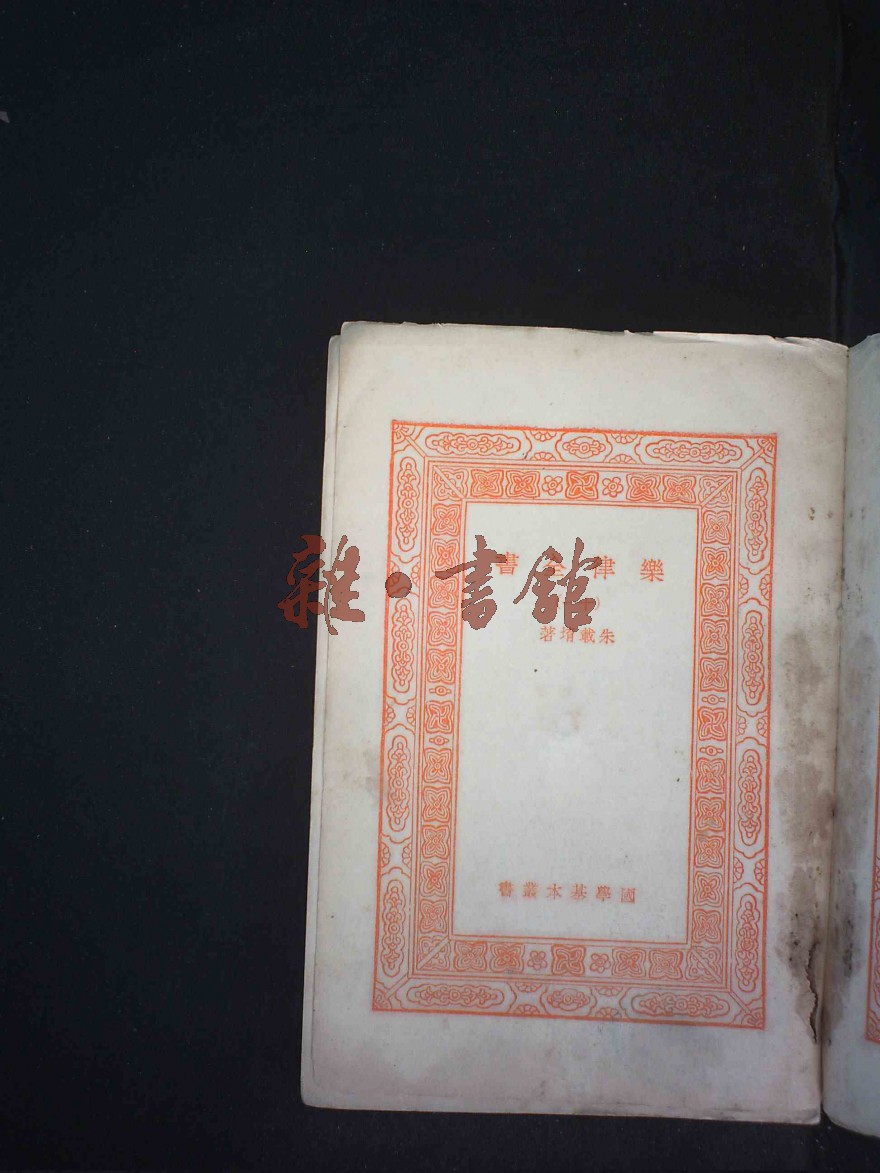 樂律全書
朱載堉著
國學基本叢書
雜·書館